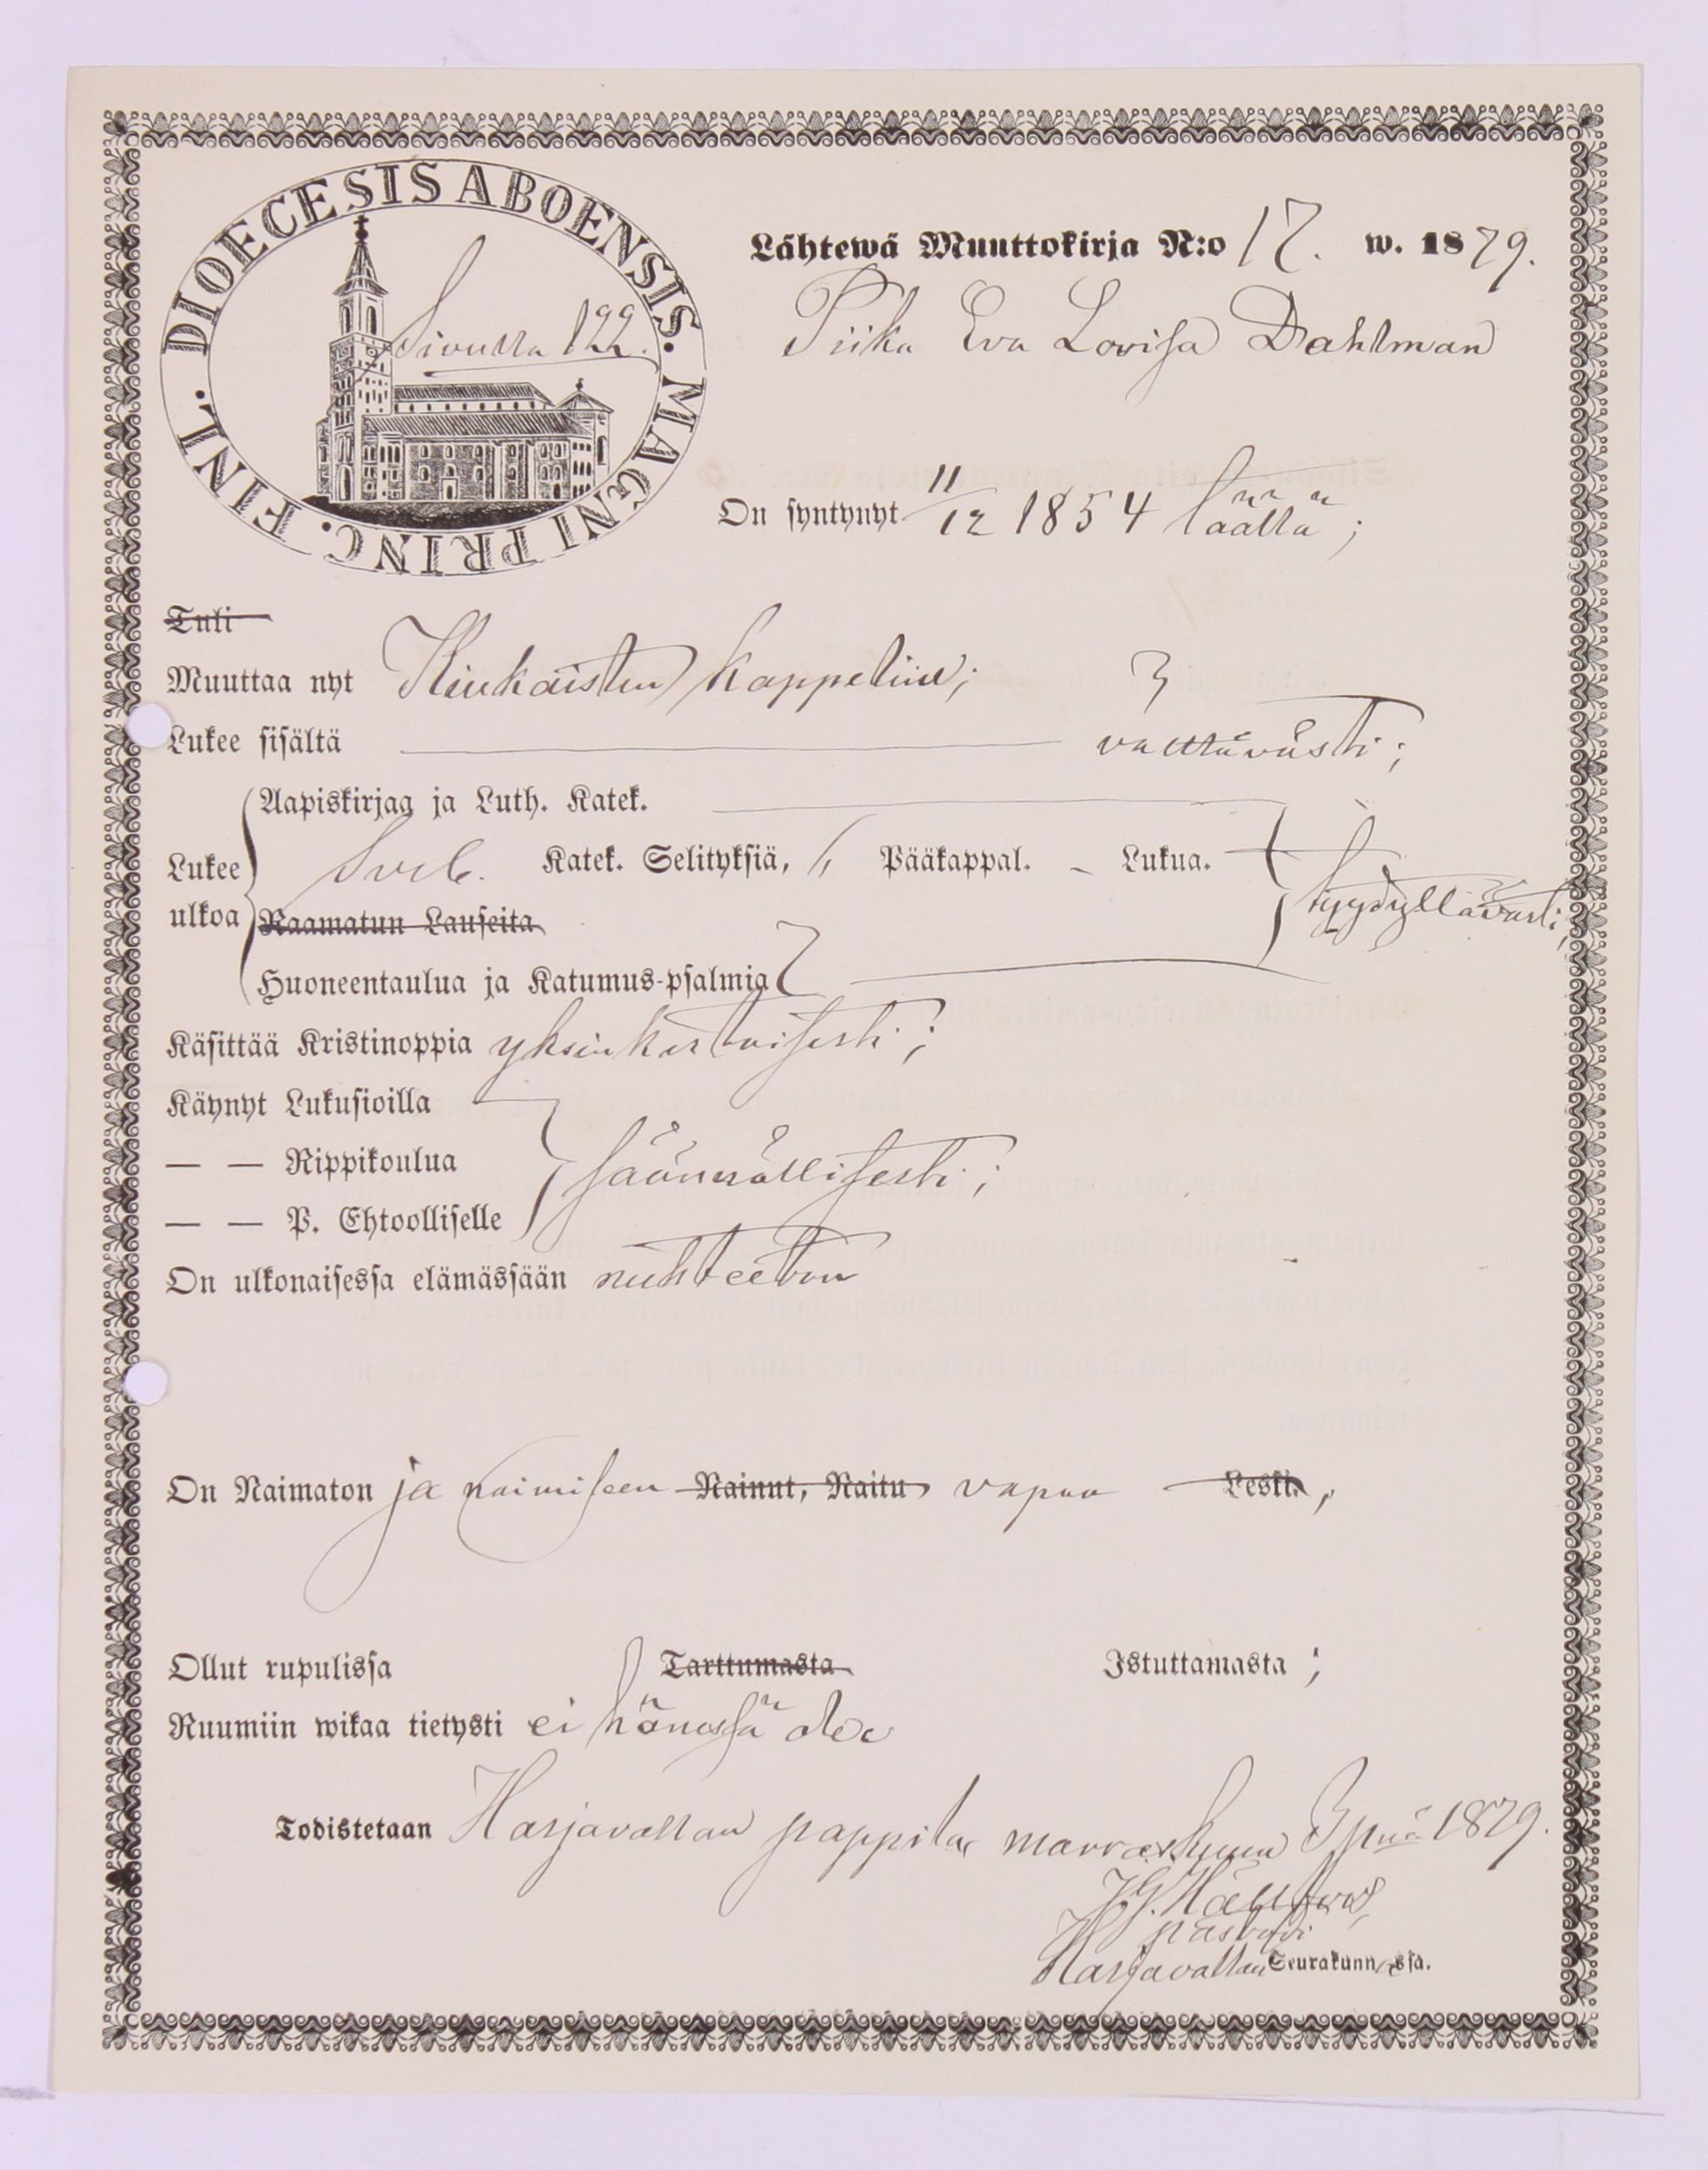 DIOECESIS ABOENSIS. MAGNI PRINC. FINL.
Sivulla 122.
Lähtewä Muuttokirja N:o 17. w. 1879.
Piika Eva Lovisa Dahlman
On syntynyt 11/12 1854 täällä;
Tuli
Muuttaa nyt Kiukaisten kappeliin;
Lukee sisältä välttävästi;
Aapiskirjaa ja Luth. Katek.
Lukee Sveb. Katek. Selityksiä, Pääkappal. – Lukua. tyydyllävästi;
ulkoa Raamatun Lauseita
Huoneentaulua ja Katumus-psalmia
Käsittää Kristinoppia yksinkertaisesti;
Käynyt Lukusioilla
— — Rippikoulua säännöllisesti;
— — P. Ehtoolliselle
On ulkonaisessa elämässään nuhteeton
On Naimaton ja naimiseen Nainut, Naitu vapaa Leski,
Ollut rupulissa Tarttumasta Istuttamasta;
Ruumiin wikaa tietysti ei hänessä ole
Todistetaan Harjavallan pappila marraskuun 3 pnä 1879.
pastori
Harjavallan Seurakunnassa.